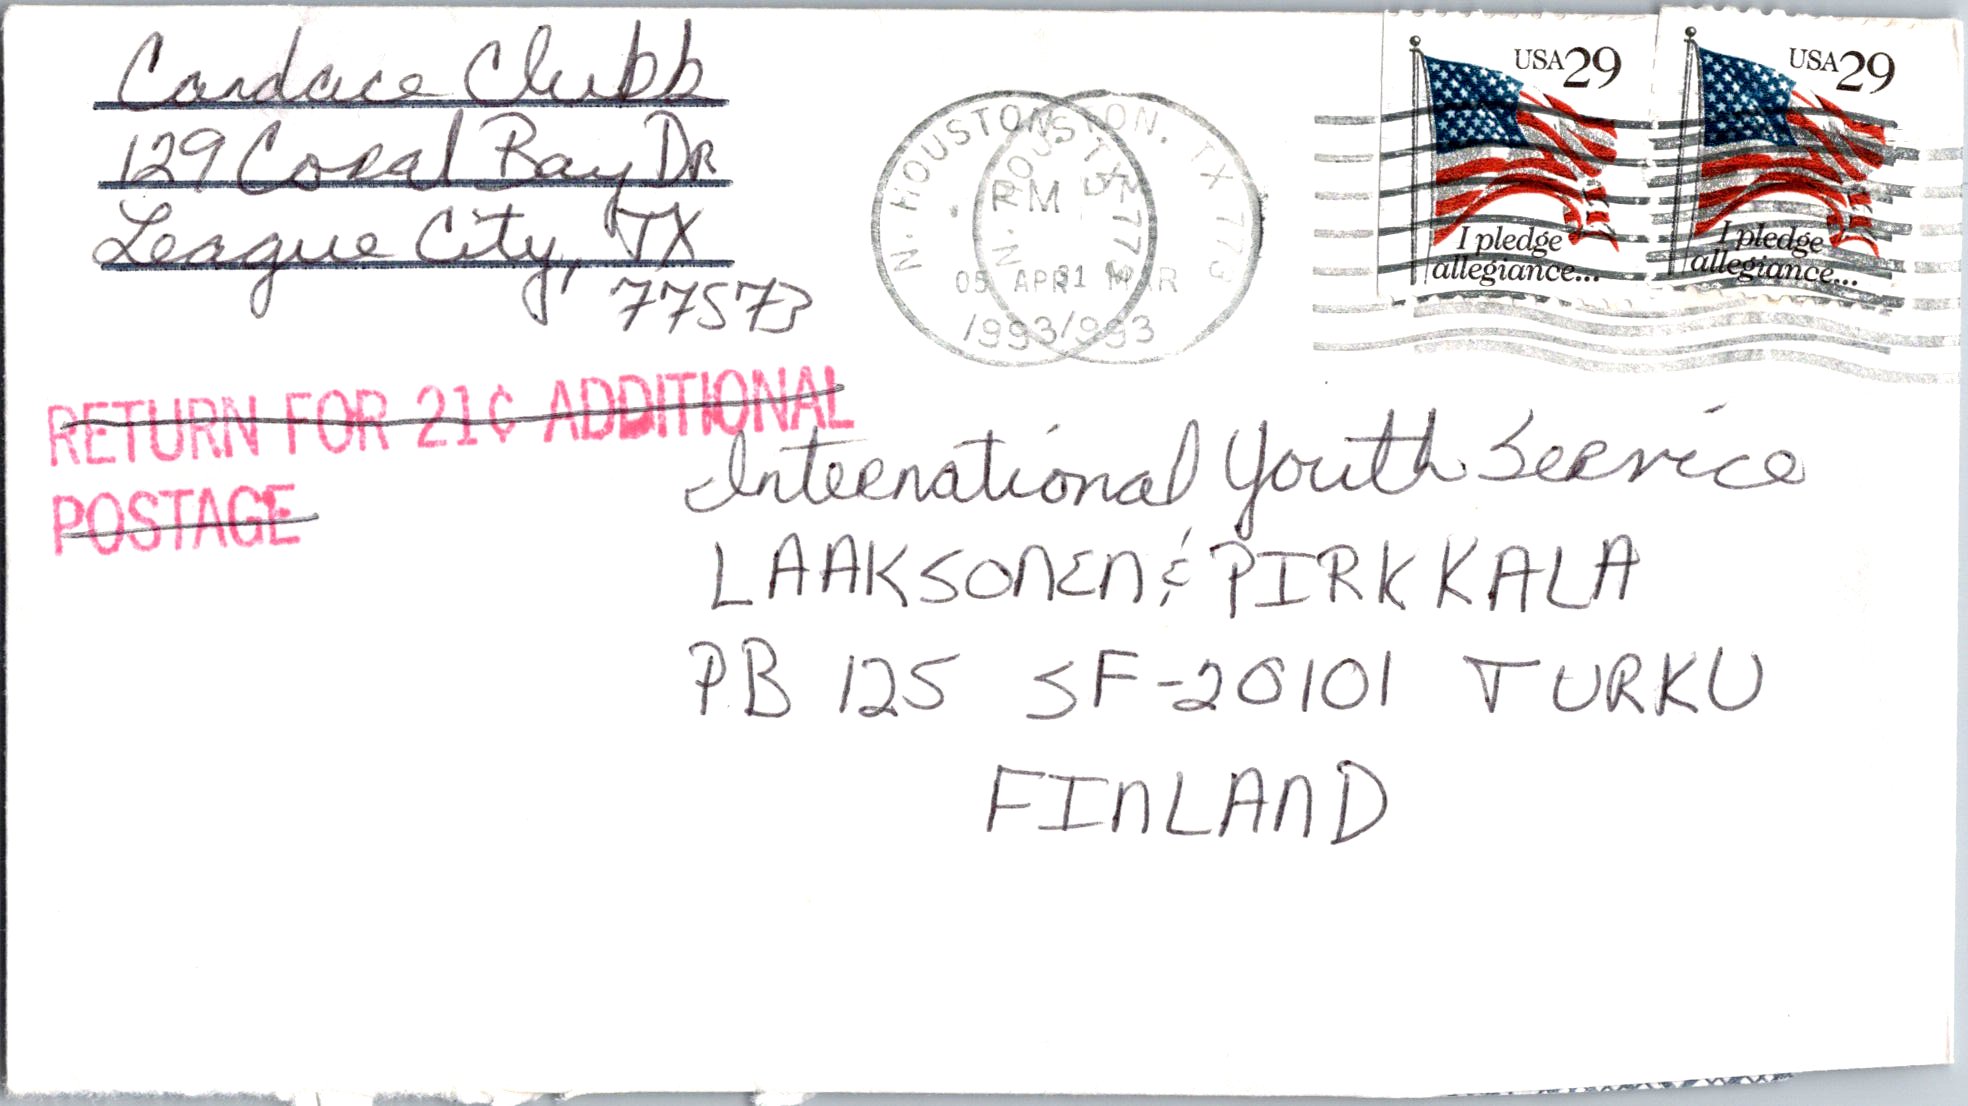 Candace Clubb
129 Coral Bay DR
League City, TX
77573
N. HOUSTON, TX 773
PM
05 APR
1993
N. HOUSTON, TX 773
PM
31 MAR
1993
USA 29
I pledge
allegiance...
USA 29
I pledge
allegiance...
RETURN FOR 21¢ ADDITIONAL
POSTAGE
International Youth Service
LAAKSONEN & PIRKKALA
PB 125 SF-20101 TURKU
FINLAND